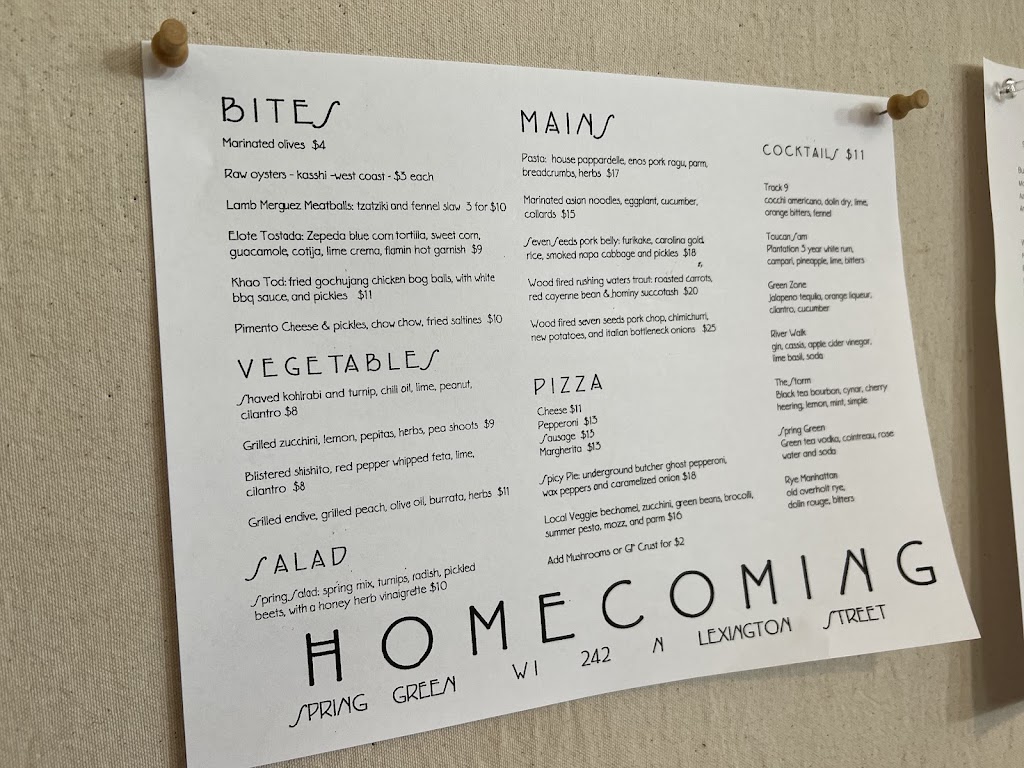 BITES
Marinated olives $4
Raw oysters - kasshi -west coast - $3 each
Lamb Merguez Meatballs: tzatziki and fennel slaw 3 for $10
Elote Tostada: Zepeda blue corn tortilla, sweet corn,
guacamole, cotija, lime crema, flamin hot garnish $9
Khao Tod: fried gochujang chicken bog balls, with white
bbq sauce, and pickles $11
Pimento Cheese & pickles, chow chow, fried saltines $10
VEGETABLES
Shaved kohlrabi and turnip, chili oil, lime, peanut,
cilantro $8
Grilled zucchini, lemon, pepitas, herbs, pea shoots $9
Blistered shishito, red pepper whipped feta, lime,
cilantro $8
Grilled endive, grilled peach, olive oil, burrata, herbs $11
SALAD
Spring Salad: spring mix, turnips, radish, pickled
beets, with a honey herb vinaigrette $10
MAINS
Pasta: house pappardelle, enos pork ragu, parm,
breadcrumbs, herbs $17
Marinated asian noodles, eggplant, cucumber,
collards $15
Seven Seeds pork belly: furikake, carolina gold
rice, smoked napa cabbage and pickles $18
Wood fired rushing waters trout: roasted carrots,
red cayenne bean & hominy succotash $20
Wood fired seven seeds pork chop, chimichurri,
new potatoes, and italian bottleneck onions $25
PIZZA
Cheese $11
Pepperoni $13
Sausage $13
Margherita $13
Spicy Pie: underground butcher ghost pepperoni,
wax peppers and caramelized onion $18
Local Veggie: bechamel, zucchini, green beans, brocolli,
summer pesto, mozz, and parm $16
Add Mushrooms or GF Crust for $2
COCKTAILS $11
Track 9
cocchi americano, dolin dry, lime,
orange bitters, fennel
Toucan Sam
Plantation 3 year white rum,
campari, pineapple, lime, bitters
Green Zone
jalapeno tequila, orange liqueur,
cilantro, cucumber
River Walk
gin, cassis, apple cider vinegar,
lime basil, soda
The Storm
Black tea bourbon, cynar, cherry
heering, lemon, mint, simple
Spring Green
Green tea vodka, cointreau, rose
water and soda
Rye Manhattan
old overholt rye,
dolin rouge, bitters
HOMECOMING
SPRING GREEN WI 242 N LEXINGTON STREET